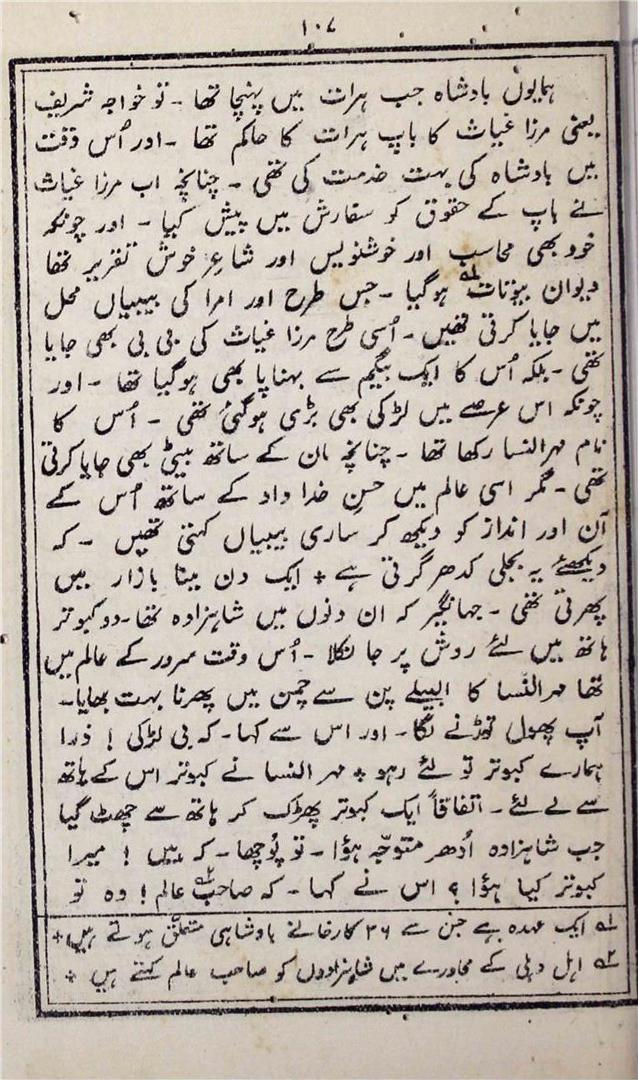 ۱۰۷
ہمایوں بادشاہ جب ہرات میں پہنچا تھا ۔ تو خواجہ شریف
یعنی مرزا غیاث کا باپ ہرات کا حاکم تھا ۔ اور اُس وقت
میں بادشاہ کی بہت خدمت کی تھی ۔ چنانچہ اب مرزا غیاث
نے باپ کے حقوق کو سفارش میں پیش کیا ۔ اور چونکہ
خود بھی محاسب اور خوشنویس اور شاعرِ خوش تقریر تھا
دیوان بیوتات ؎۱ ہوگیا ۔ جس طرح اور امرا کی بیبیاں محل
میں جایا کرتی تھیں ۔ اُسی طرح مرزا غیاث کی بی بی بھی جایا
تھی ۔ بلکہ اُس کا ایک بیگم سے بہناپا بھی ہوگیا تھا ۔ اور
چونکہ اس عرصے میں لڑکی بھی بڑی ہوگئی تھی ۔ اُس کا
نام مہرالنسا رکھا تھا ۔ چنانچہ ماں کے ساتھ بیٹی بھی جایا کرتی
تھی ۔ مگر اسی عالم میں حسنِ خدا داد کے ساتھ اُس کے
آن اور انداز کو دیکھ کر ساری بیبیاں کہتی تھیں ۔ کہ
دیکھئے یہ بجلی کدھر گرتی ہے * ایک دن مینا بازار میں
پھرتی تھی ۔ جہانگیر کہ ان دنوں میں شاہزادہ تھا ۔ دو کبوتر
ہاتھ میں لئے روش پر جا نکلا ۔ اُس وقت سرور کے عالم میں
تھا مہرالنسا کا البیلے پن سے چمن میں پھرنا بہت بھایا ۔
آپ پھول توڑنے لگا ۔ اور اس سے کہا ۔ کہ بی لڑکی ! ذرا
ہمارے کبوتر تو لئے رہو * مہر النسا نے کبوتر اس کے ہاتھ
سے لے لئے ۔ اتفاقاً ایک کبوتر پھڑک کر ہاتھ سے چھٹ گیا
جب شاہزادہ اُدھر متوجّہ ہؤا ۔ تو پُوچھا ۔ کہ ہیں ! میرا
کبوتر کیا ہؤا ؟ اس نے کہا ۔ کہ صاحب ؎۲ عالم ! وہ تو
؎۱ ایک عہدہ ہے جن سے ۳۶ کارخانے بادشاہی متعلّق ہوتے ہیں *
؎۲ اہل دہلی کے محاورے میں شاہزادوں کو صاحب عالم کہتے ہیں *